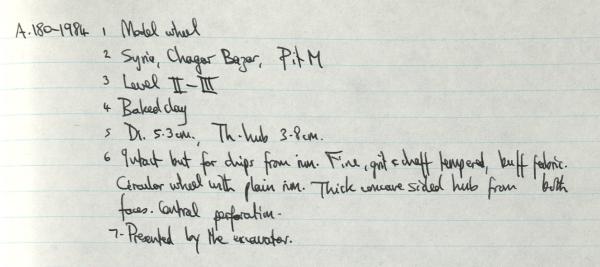 A.180-1984 1 Model wheel
2 Syria, Chagar Bazar, Pit M
3 Level II-III
4 Baked clay
5 Di. 5.3cm., Th. hub 3.8cm.
6 Intact but for chips from rim. Fine, grit & chaff tempered, buff fabric.
Circular wheel with plain rim. Thick concave sided hub from both
faces. Central perforation.
7- Presented by the excavator.